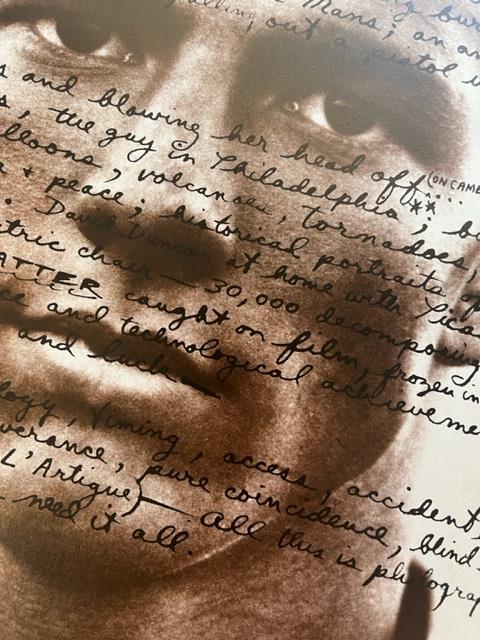 Mans; an
pulling out a pistol
s and blowing her head off... (ON CAME
s, the guy in Philadelphia**;
lloons, volcanoes, tornadoes,
+ peace; historical portraits of
. David Duncan at home with Picas
ctric chair — 30,000 decomposing
ATTER caught on film, frozen in
ce and technological achieveme
and luck —
ology, timing, access, accident,
verance, pure coincidence, blind-
L'Artigue) — all this is photograp
need it all.